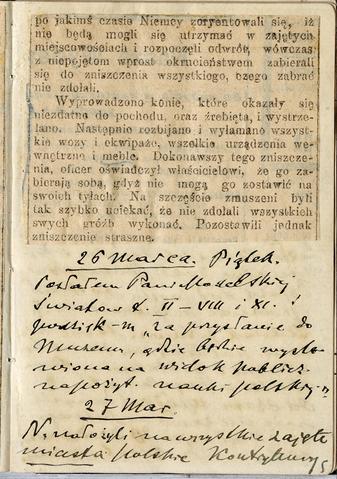 po jakimś czasie Niemcy zoryentowali się, iż
nie będą mogli się utrzymać w zajętych
miejscowościach i rozpoczęli odwrót, wówczas
z niepojętem wprost okrucieństwem zabierali
się do zniszczenia wszystkiego, czego zabrać
nie zdołali.
Wyprowadzono konie, które okazały się
niezdatne do pochodu, oraz źrebięta, i wystrze-
lano. Następnie rozbijano i wyłamano wszyst-
kie wozy i ekwipaże, wszelkie urządzenia we-
wnętrzne i meble. Dokonawszy tego zniszcze-
nia, oficer oświadczył właścicielowi, że go za-
bierają sobą, gdyż nie mogą go zostawić na
swoich tyłach. Na szczęście zmuszeni byli
tak szybko uciekać, że nie zdołali wszystkich
swych gróźb wykonać. Pozostawili jednak
zniszczenie straszne.
26 marca. Piątek.
Posłałem Pani
II – VIII i XI.
"za przysłanie do
Muzeum, gdzie będzie wysta-
wiona na widok publicz.
na pożyt. nauki polskiej"
27 Mar.
N. nałożyli na wszystkie zajęte
miasta polskie Kontrybucy